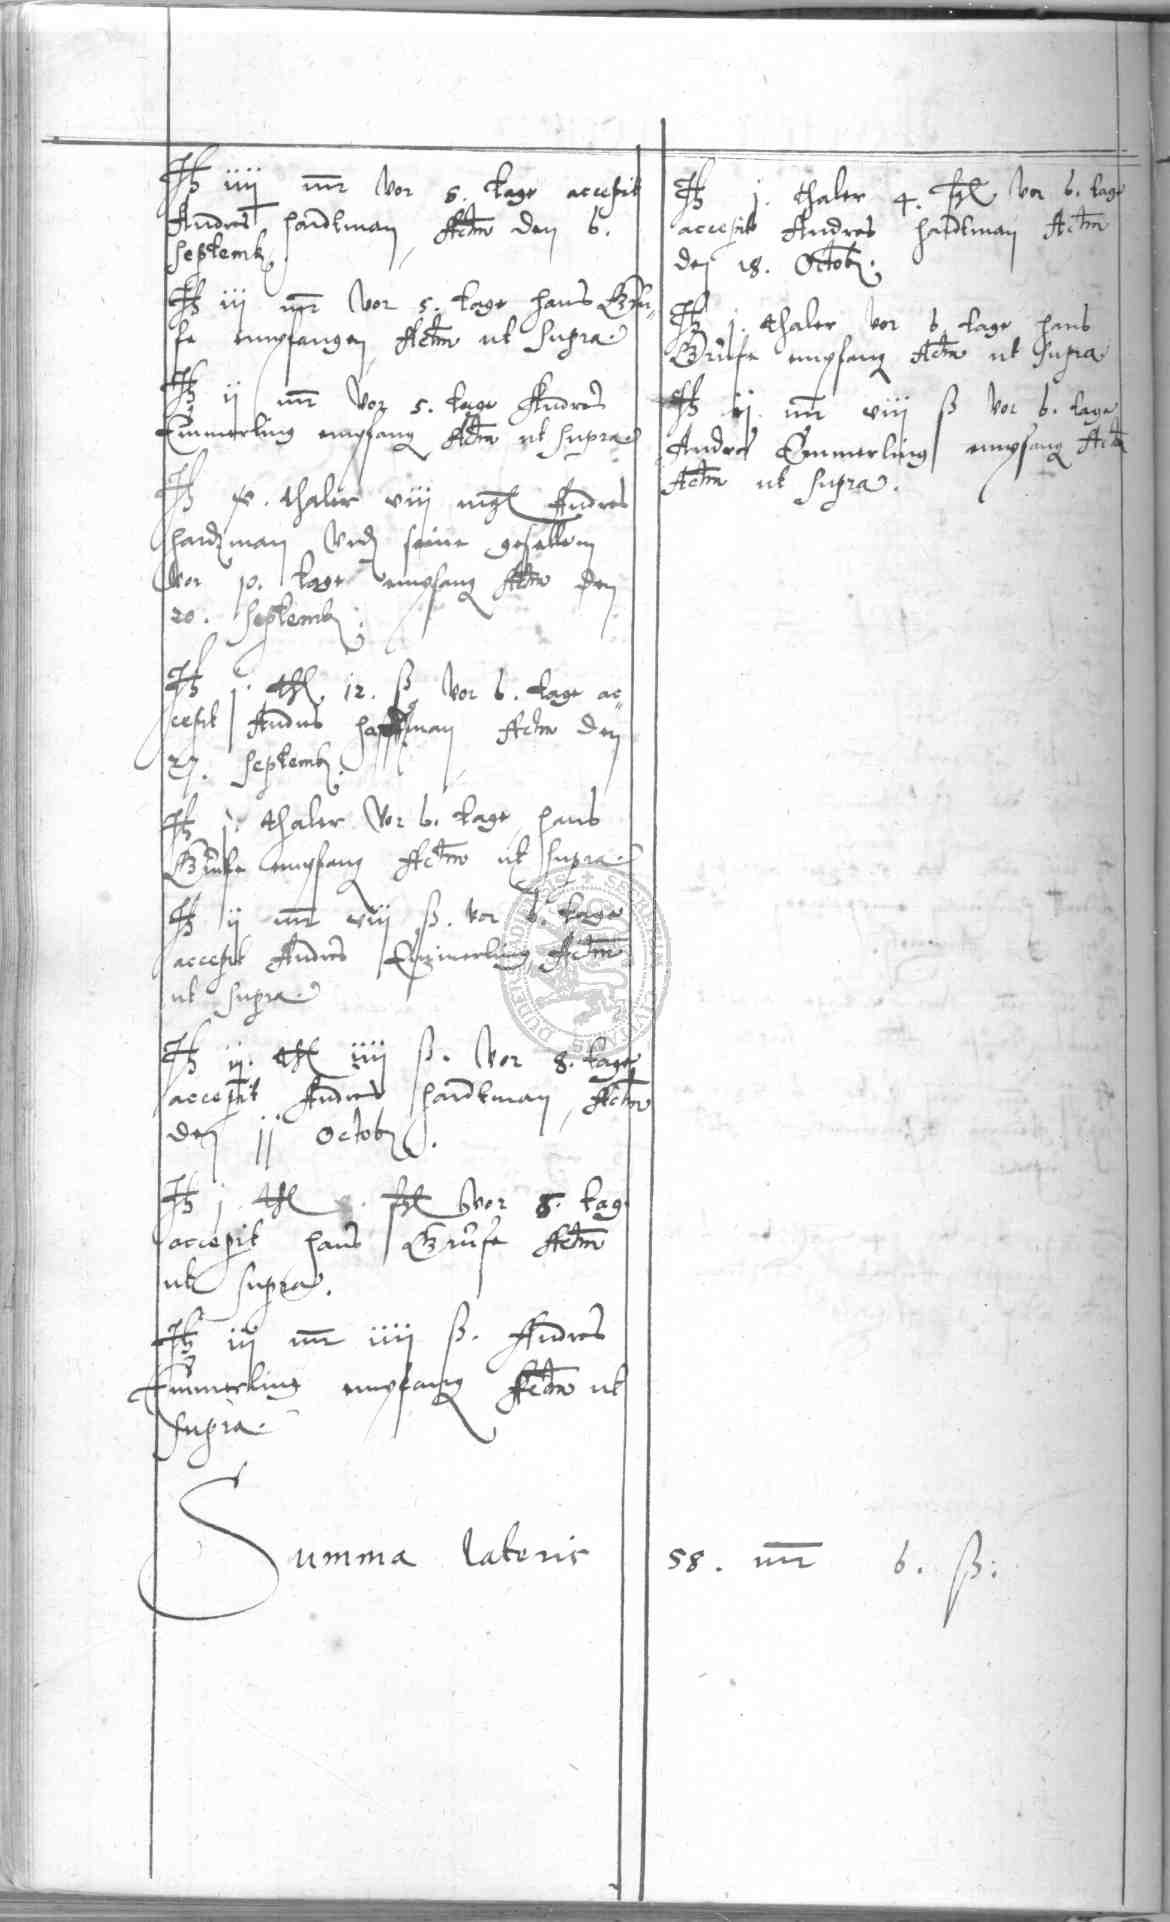 It iiij mr vor 6. tage accepit
Andres hardtman, Actm den 6.
Septemb.
It iij mr vor 5. tage hans Gru-
se empfangen Actm ut supra.
It ij mr vor 5. tage Andres
Emmerling empfang Actm ut supra.
It thaler viij mgl Andres
hardtman vnd seine gesellenn
vor 10. tage empfang Actm den
20. Septemb.
It j. thl. 12. ß vor 6. tage ac-
cepit Andres Actm den
27. Septemb.
It j. thaler vor 6. tage hans
Gruse empfang Actm ut supra.
It ij mr viij ß. vor 6. tage
accepit Andres Emmerling Actm
ut supra.
It ij. thl iiij ß. vor 8. tage
accepit Andres hardtman, Actm
den 11 Octob.
It j. thl vor 8. tag
accepit hans Gruse Actm
ut supra.
It iij mr iiij ß. Andres
Emmerling empfang Actm ut
supra.
It j. thaler 4. vor 6. tage
accepit Andres hardtman Actm
den 18. Octob.
It j. thaler vor 6 tage hans
Gruse empfang Actm ut supra
It ij mr viij ß vor 6. tage
Andres Emmerling empfang Actm
Actm ut supra.
Summa lateris 58. mr 6. ß.